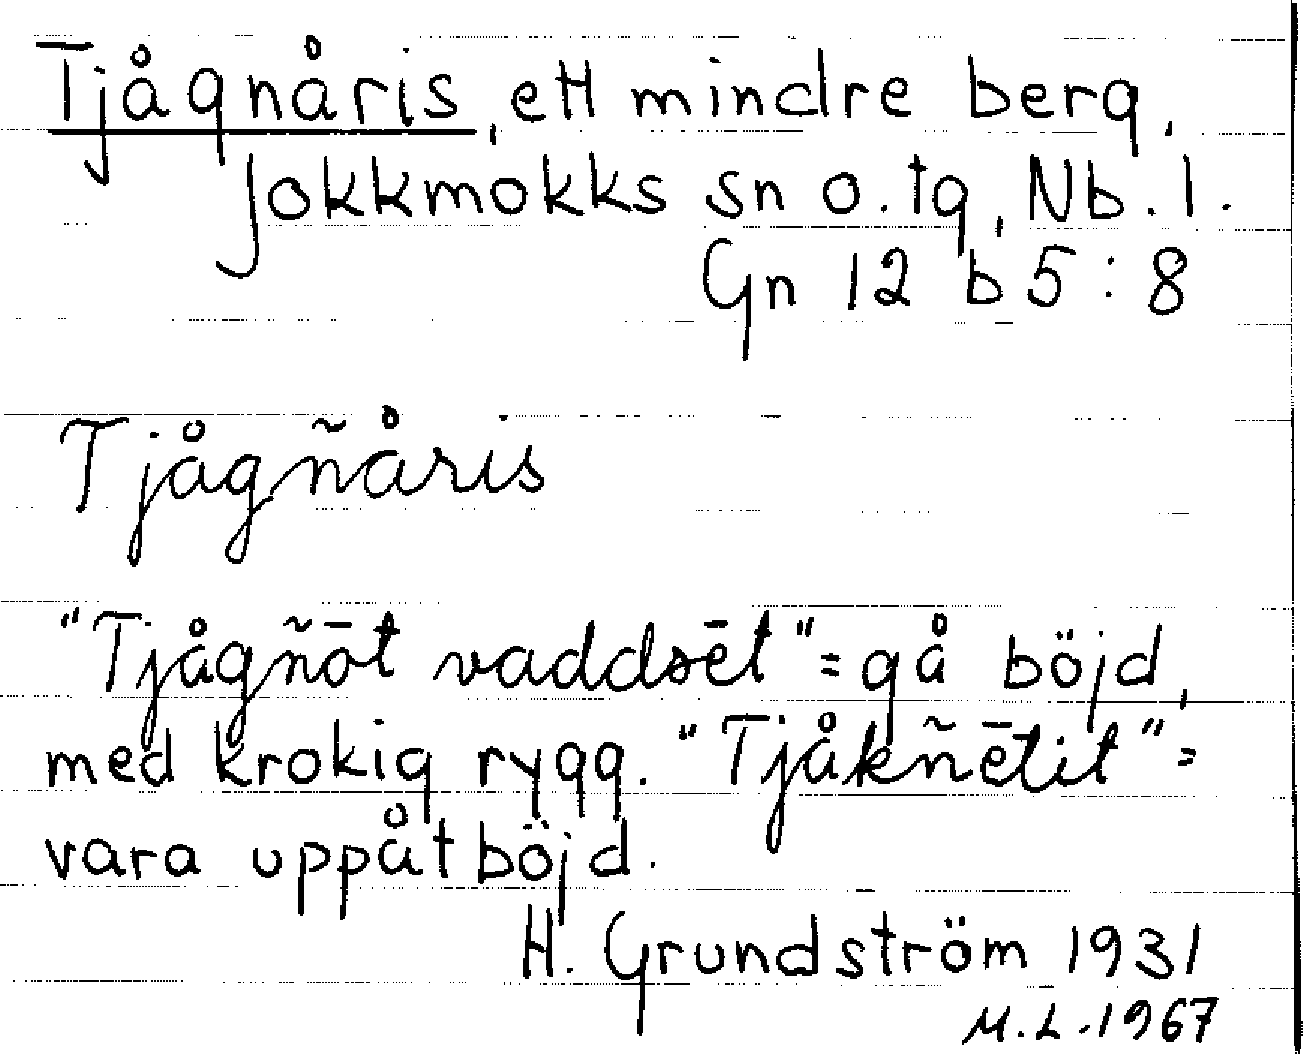 Tjågnåris, ett mindre berg,
Jokkmokks sn o. tg, Nb. l.
Gn 12 b 5:8
Tjågñåris
"Tjågñōt vaddsēt" = gå böjd,
med krokig rygg. "Tjåkñētit" =
vara uppåtböjd.
H. Grundström 1931
M.L. 1967